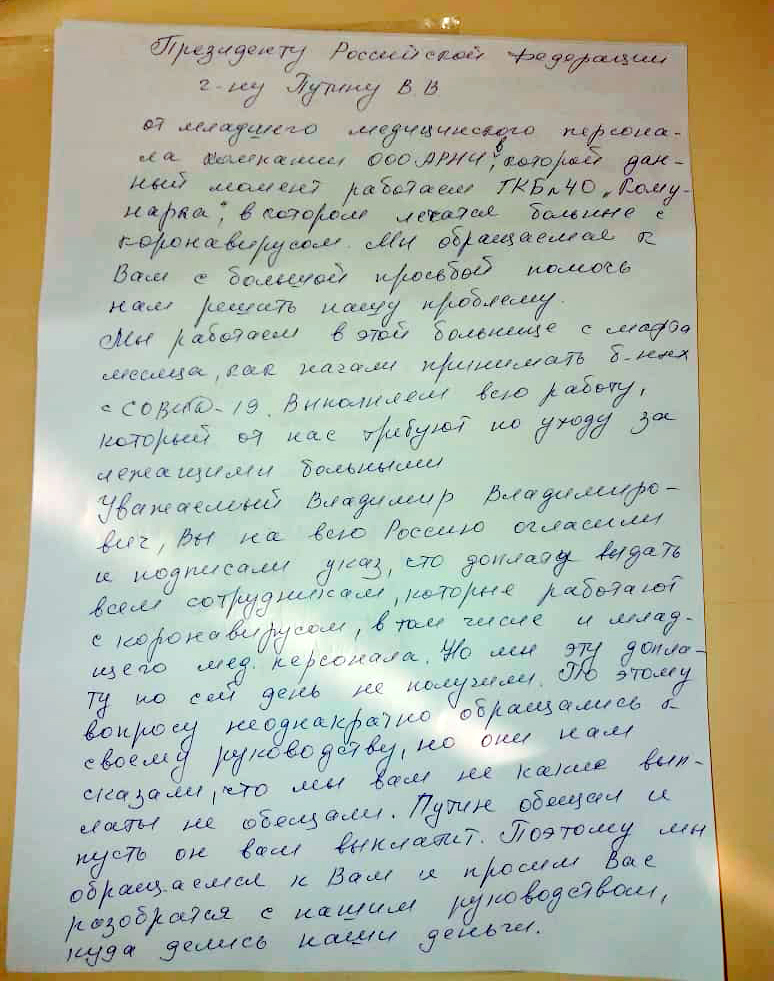 Президенту Российской Федерации
г-ну Путину В.В
от младшего медицинского персона-
ла компании ООО АРНИ, в которой дан-
ный момент работаем ГКБ№40 „Кому-
нарка", в котором лежатся больные с
коронавирусом. Мы обращаемся к
Вам с большой просьбой помочь
нам решить нашу проблему.
Мы работаем в этой больнице с марта
месяца, как начали принимать б-ных
с COВИD-19. Выполняем всю работу,
который от нас требуют по уходу за
лежащими больными
Уважаемый Владимир Владимиро-
вич, Вы на всю Россию огласили
и подписали указ, что доплату выдать
всем сотрудникам, которые работают
с коронавирусом, в том числе и млад-
щего мед. персонала. Но мы эту допла-
ту по сей день не получили. По этому
вопросу неоднакратно обращались к
своему руководству, но они нам
сказали, что мы вам не какие вып-
латы не обещали. Путин обещал и
пусть он вам выплатит. Поэтому мы
обращаемся к Вам и просим Вас
разобратся с нашим руководством,
куда делись наши деньги.